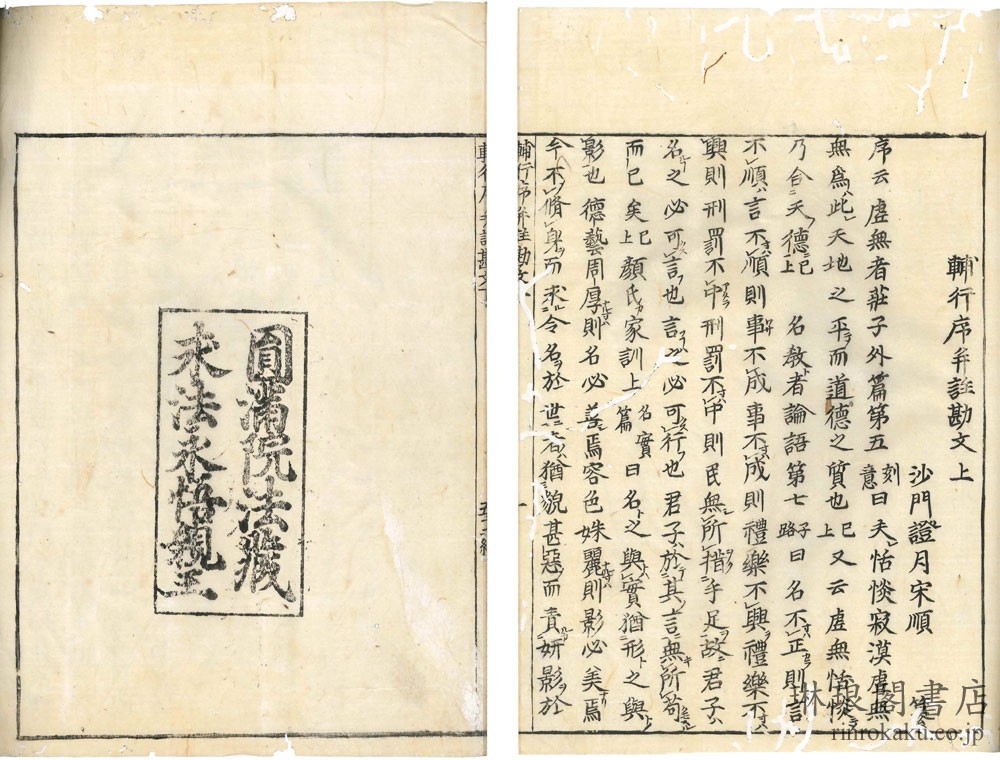 輔行序并註勘文上
沙門證月宋順
序云虛無者莊子外篇第五刻意曰夫恬惔寂漠虛無
無爲此天地之平而道德之質也已上又云虛無恬惔
乃合天德已上名敎者論語第七子路曰名不正則言
不順言不順則事不成事不成則禮樂不興禮樂不
興則刑罰不中刑罰不中則民無所措手足故君子
名之必可言也言之必可行也君子於其言無所苟
而已矣已上顏氏家訓上名實篇曰名之與實猶形之與
影也德藝周厚則名必善焉容色姝麗則影必美焉
今不脩身而求令名於世者猶貌甚惡而責妍影於
輔行序并註勘文
圓滿院法藏
永悟親王
琳琅閣書店
rinrokaku.co.jp